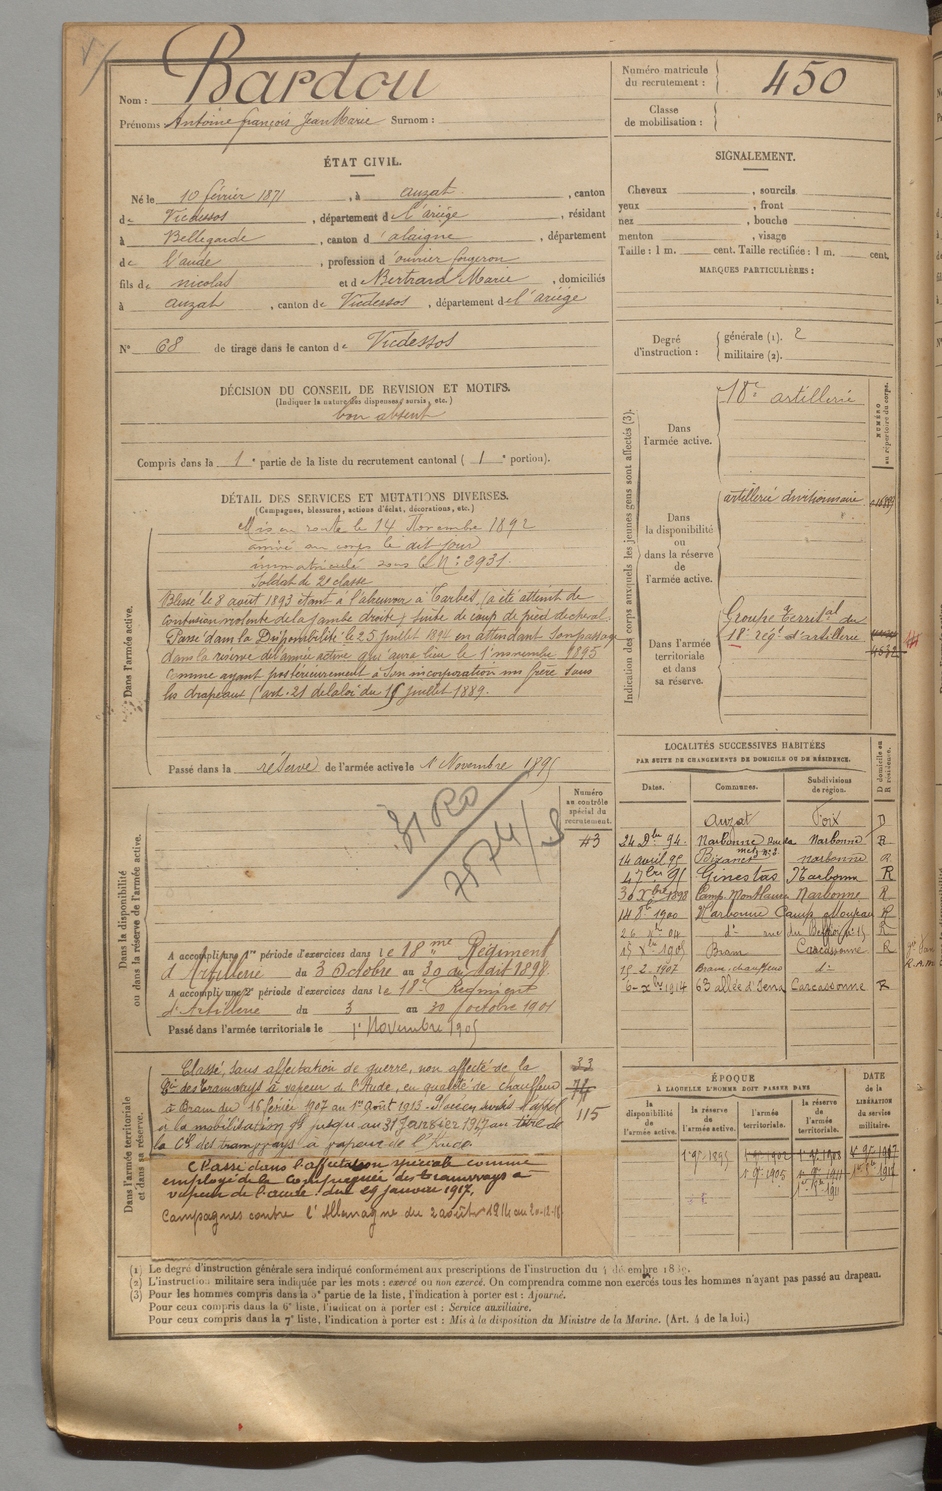 Nom : Bardou
Prénoms Antoine françois Jean Marie Surnom :
Numéro matricule du recrutement : 450
Classe de mobilisation :
ÉTAT CIVIL.
Né le 10 février 1871, à auzat, canton
de Vicdessos, département de l'ariège, résidant
à Bellegarde, canton d'alaigne, département
de l'aude, profession d'ouvrier forgeron
fils de nicolas et de Bertrand Marie, domiciliés
à auzat, canton de Vicdessos, département de l'ariège
N° 68 de tirage dans le canton de Vicdessos
SIGNALEMENT.
Cheveux , sourcils
yeux , front
nez , bouche
menton , visage
Taille : 1 m. cent. Taille rectifiée : 1 m. cent.
MARQUES PARTICULIÈRES :
Degré d'instruction : générale (1). 2
militaire (2).
DÉCISION DU CONSEIL DE REVISION ET MOTIFS.
(Indiquer la nature des dispenses, sursis, etc.)
bon absent
Compris dans la 1e partie de la liste du recrutement cantonal ( 1e portion).
DÉTAIL DES SERVICES ET MUTATIONS DIVERSES.
(Campagnes, blessures, actions d'éclat, décorations, etc.)
Dans l'armée active.
Mis en route le 14 Novembre 1892
arrivé au corps le dit jour
immatriculé sous le N° : 3931.
Soldat de 2e classe
Blessé le 8 août 1893 étant à l'abreuvoir à Tarbes (a été atteint de
contusion violente de la jambe droite) suite de coup de pied de cheval
Passé dans la Disponibilité le 25 juillet 1894 en attendant son passage
dans la réserve de l'armée active qui aura lieu le 1er novembre 1895
comme ayant postérieurement à son incorporation un frère sous
les drapeaux (art. 21 de la loi du 15 juillet 1889.
Passé dans la réserve de l'armée active le 1 Novembre 1895
Dans la disponibilité ou dans la réserve de l'armée active.
Numéro au contrôle spécial du recrutement.
43
A accompli une 1re période d'exercices dans le 18me Régiment
d'Artillerie du 3 Octobre au 30 du dit 1898
A accompli une 2e période d'exercices dans le 18e Régiment
d'Artillerie du 3 au 30 octobre 1901
Passé dans l'armée territoriale le 1er Novembre 1905
Dans l'armée territoriale et dans sa réserve.
Classé, sans affectation de guerre, non affecté de la
Cie des Tramways à vapeur de l'Aude, en qualité de chauffeur
à Bram du 16 février 1907 au 1er Août 1913.
à la mobilisation gle jusqu'au 31 Janvier 1917 au titre de
la Cie des tramways à vapeur de l'Aude.
33
115
Passé dans l'affectation spéciale comme
employé de la Compagnie des tramways à
vapeur de l'aude du 29 janvier 1917.
Campagnes contre l'Allemagne du 2 août 1914 au 20-12-18
Indication des corps auxquels les jeunes gens sont affectés (3).
NUMÉRO au répertoire du corps.
Dans l'armée active.
18e artillerie
Dans la disponibilité ou dans la réserve de l'armée active.
artillerie divisionnaire
Dans l'armée territoriale et dans sa réserve.
Groupe territal du
18e régt d'artillerie
4632
LOCALITÉS SUCCESSIVES HABITÉES
PAR SUITE DE CHANGEMENTS DE DOMICILE OU DE RÉSIDENCE.
D domicile ou R résidence.
Dates. Communes. Subdivisions de région.
Auzat Foix D
24 Dbre 94. Narbonne Narbonne R
14 avril 95 Bizanet narbonne R
4 7bre 95 Ginestas Narbonne R
30 Xbre 1898 Camp. Montlaurès Narbonne R
1900 Narbonne Camp Moujan R
R
15 Xbre 1905 Bram Carcassonne R
15-2-1907 Bram chauffeur do
6-Xbre 1914 63 allée d'Iéna Carcassonne R
ÉPOQUE
À LAQUELLE L'HOMME DOIT PASSER DANS
DATE de la LIBÉRATION du service militaire.
la disponibilité de l'armée active. la réserve de l'armée active. l'armée territoriale. la réserve de l'armée territoriale.
1er 9bre 1895
(1) Le degré d'instruction générale sera indiqué conformément aux prescriptions de l'instruction du 4 décembre 1889.
(2) L'instruction militaire sera indiquée par les mots : exercé ou non exercé. On comprendra comme non exercés tous les hommes n'ayant pas passé au drapeau.
(3) Pour les hommes compris dans la 5e partie de la liste, l'indication à porter est : Ajourné.
Pour ceux compris dans la 6e liste, l'indication à porter est : Service auxiliaire.
Pour ceux compris dans la 7e liste, l'indication à porter est : Mis à la disposition du Ministre de la Marine. (Art. 4 de la loi.)